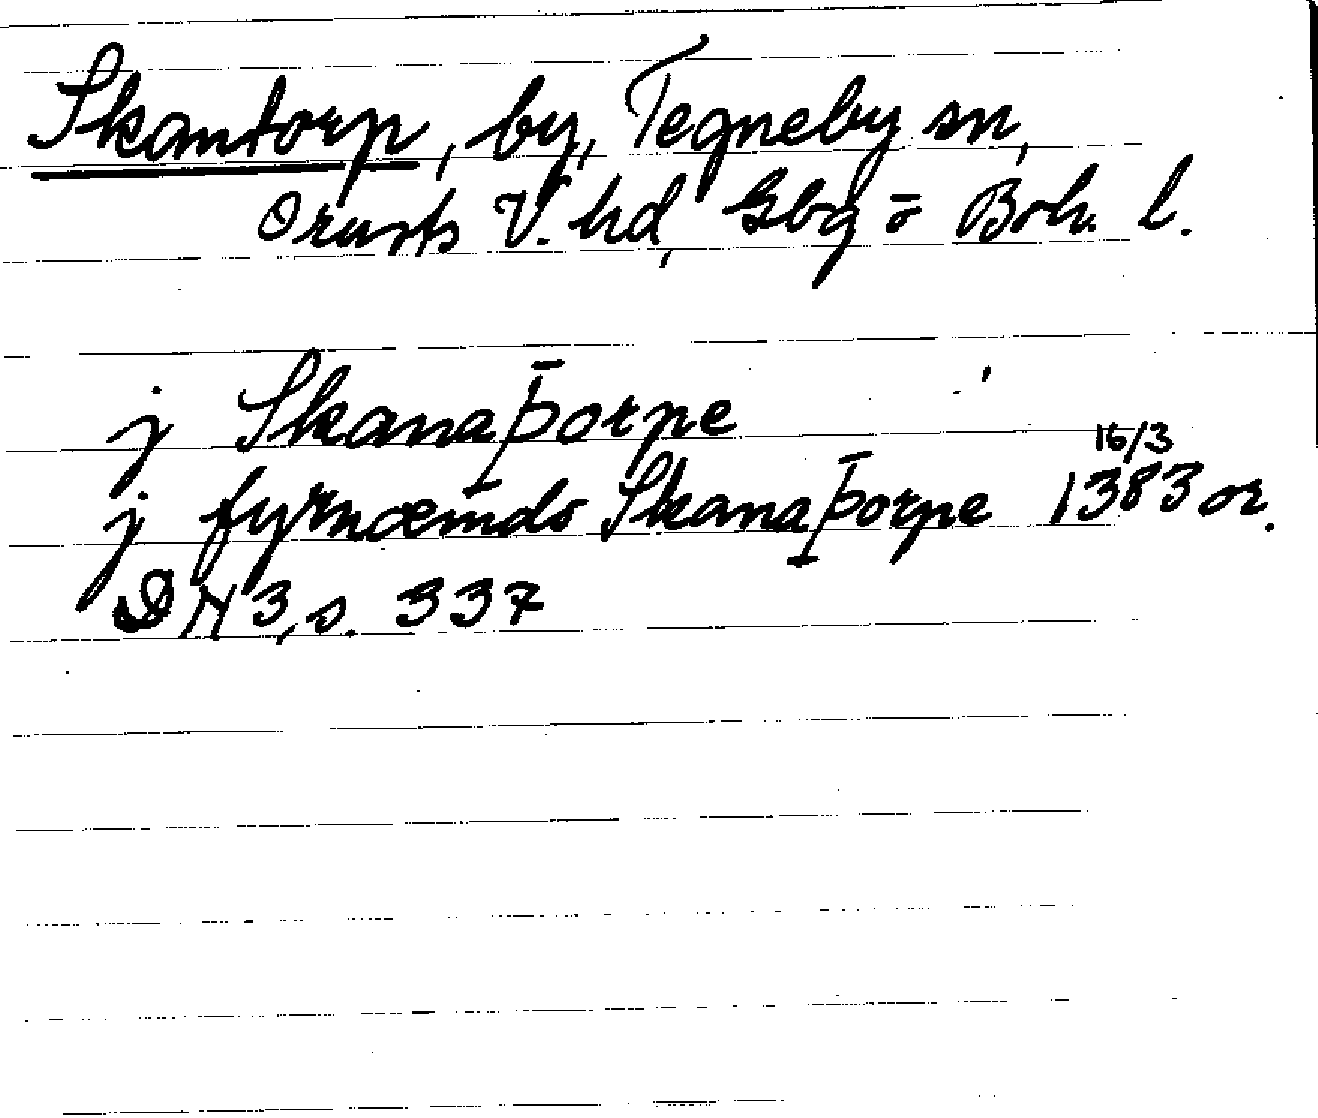 Skantorp, by, Tegneby sn,
Orusts V. hd, Gbg o Boh. l.
j Skanaþorpe
16/3
j fyrnæmdo Skanaþorpe 1383 or.
DN 3, s. 337